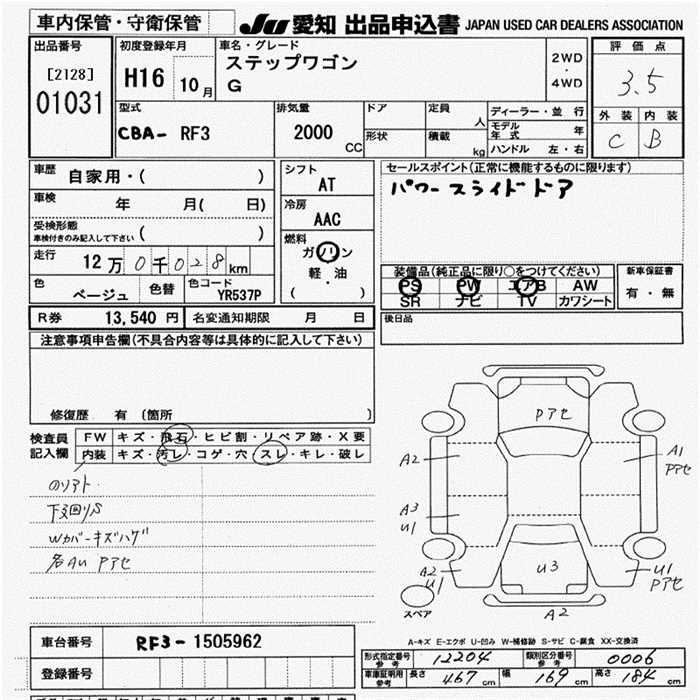 車内保管・守衛保管
JU 愛知 出品申込書 JAPAN USED CAR DEALERS ASSOCIATION
出品番号
[2128]
01031
初度登録年月
H16 10月
車名・グレード
ステップワゴン
G
2WD
・
4WD
評価点
3.5
外装 内装
C B
型式
CBA- RF3
排気量
2000 CC
ドア
定員 人
形状
積載 kg
ディーラー・並行
モデル年式 年
ハンドル 左・右
車歴 自家用・( )
車検 年 月( 日)
受検形態
車検付きのみ記入して下さい ( )
走行 12万0千028km
色 ベージュ 色替 色コード YR537P
シフト
AT
冷房
AAC
燃料
ガソリン
軽・油
( )
セールスポイント(正常に機能するものに限ります)
パワースライドドア
装備品(純正品に限り○をつけてください)
PS PW エアB AW
SR ナビ TV カワシート
新車保証書
有・無
R券 13,540円 名変通知期限 月 日
後日品
注意事項申告欄(不具合内容等は具体的に記入して下さい)
修復歴 有 〔箇所 〕
検査員記入欄
FW キズ・飛石・ヒビ割・リペア跡・X要
内装 キズ・汚レ・コゲ・穴・スレ・キレ・破レ
下廻りS
Wカバーキズハゲ
各AU Pアセ
Pアセ
A2
A1
Pアセ
A3
U1
U3
A2
U1
U1
Pアセ
A2
スペア
A-キズ E-エクボ U-凹み W-補修跡 S-サビ C-腐食 XX-交換済
車台番号 RF3-1505962
登録番号
形式指定番号 参考 12204 類別区分番号 参考 0006
車庫証明用 参考 長さ 467 cm 幅 169 cm 高さ 184 cm